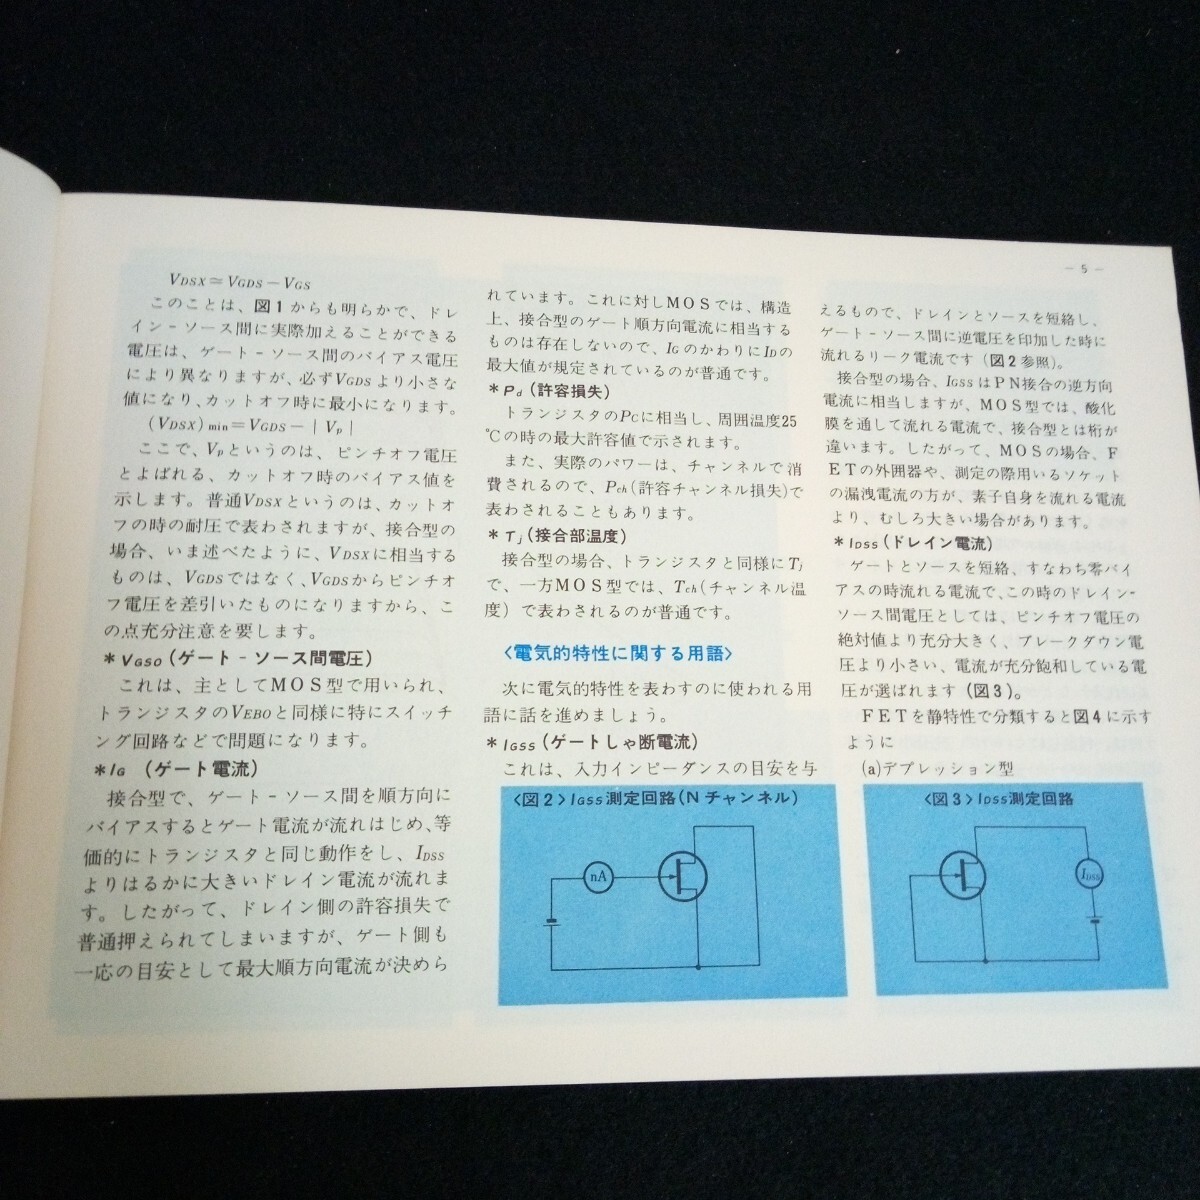 －5－
VDSX≃VGDS－VGS
このことは、図1からも明らかで、ドレ
イン－ソース間に実際加えることができる
電圧は、ゲート－ソース間のバイアス電圧
により異なりますが、必ずVGDSより小さな
値になり、カットオフ時に最小になります。
(VDSX)min＝VGDS－｜Vp｜
ここで、Vpというのは、ピンチオフ電圧
とよばれる、カットオフ時のバイアス値を
示します。普通VDSXというのは、カットオ
フの時の耐圧で表わされますが、接合型の
場合、いま述べたように、VDSXに相当する
ものは、VGDSではなく、VGDSからピンチオ
フ電圧を差引いたものになりますから、こ
の点充分注意を要します。
＊VGSO(ゲート－ソース間電圧)
これは、主としてMOS型で用いられ、
トランジスタのVEBOと同様に特にスイッチ
ング回路などで問題になります。
＊IG (ゲート電流)
接合型で、ゲート－ソース間を順方向に
バイアスするとゲート電流が流れはじめ、等
価的にトランジスタと同じ動作をし、IDSS
よりはるかに大きいドレイン電流が流れま
す。したがって、ドレイン側の許容損失で
普通押えられてしまいますが、ゲート側も
一応の目安として最大順方向電流が決めら
れています。これに対しMOSでは、構造
上、接合型のゲート順方向電流に相当する
ものは存在しないので、IGのかわりにIDの
最大値が規定されているのが普通です。
＊Pd(許容損失)
トランジスタのPCに相当し、周囲温度25
℃の時の最大許容値で示されます。
また、実際のパワーは、チャンネルで消
費されるので、Pch(許容チャンネル損失)で
表わされることもあります。
＊Tj(接合部温度)
接合型の場合、トランジスタと同様にTj
で、一方MOS型では、Tch(チャンネル温
度)で表わされるのが普通です。
〈電気的特性に関する用語〉
次に電気的特性を表わすのに使われる用
語に話を進めましょう。
＊IGSS(ゲートしゃ断電流)
これは、入力インピーダンスの目安を与
〈図2〉IGSS測定回路(Nチャンネル)
nA
えるもので、ドレインとソースを短絡し、
ゲート－ソース間に逆電圧を印加した時に
流れるリーク電流です(図2参照)。
接合型の場合、IGSSはPN接合の逆方向
電流に相当しますが、MOS型では、酸化
膜を通して流れる電流で、接合型とは桁が
違います。したがって、MOSの場合、F
ETの外囲器や、測定の際用いるソケット
の漏洩電流の方が、素子自身を流れる電流
より、むしろ大きい場合があります。
＊IDSS(ドレイン電流)
ゲートとソースを短絡、すなわち零バイ
アスの時流れる電流で、この時のドレイン－
ソース間電圧としては、ピンチオフ電圧の
絶対値より充分大きく、ブレークダウン電
圧より小さい、電流が充分飽和している電
圧が選ばれます(図3)。
FETを静特性で分類すると図4に示す
ように
(a)デプレッション型
〈図3〉IDSS測定回路
IDSS